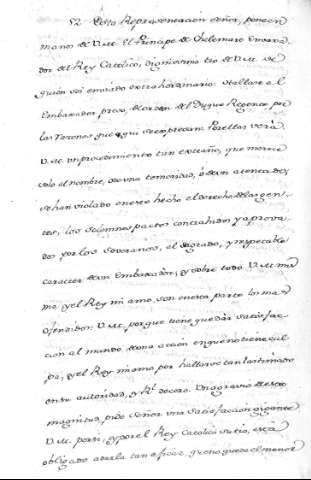 52 Esta Representacion señor, pone en
manos de V.M. El Principe de Chelemare Embaxa
dor del Rey Catolico, dignissimo tio de V.M. de
quien soi enviado extrahordinario. Hallase el
Embaxador preso, de orden del Duque Regente por
las razones que aqui se expressan. Por ellas verà
V.M. un procedimiento tan extraño, que merece
solo el nombre, de una temeridad, ò de un atentado;
se han violado en este hecho el derecho de las gen
tes, los solemnes pactos contrahidos y aprova
dos por los soveranos, el sagrado, y respectable
caracter de un Embaxador; y sobre todo V.M. mis
mo y el Rey mi amo, son en esta parte los mas
ofendidos: V.M. porque tiene que dàr satisfac
cion al mundo de una accion en que no tiene cul
pa, y el Rey mi amo por hallarse tan lastimado
en su autoridad, y Rl. decoro. Un agravio de esta
magnitud, pide Señor una satisfaccion gigante
V.M. por si, y por el Rey Catolico su tio, està
obligado a darla tan eficaz, que no quede el menor